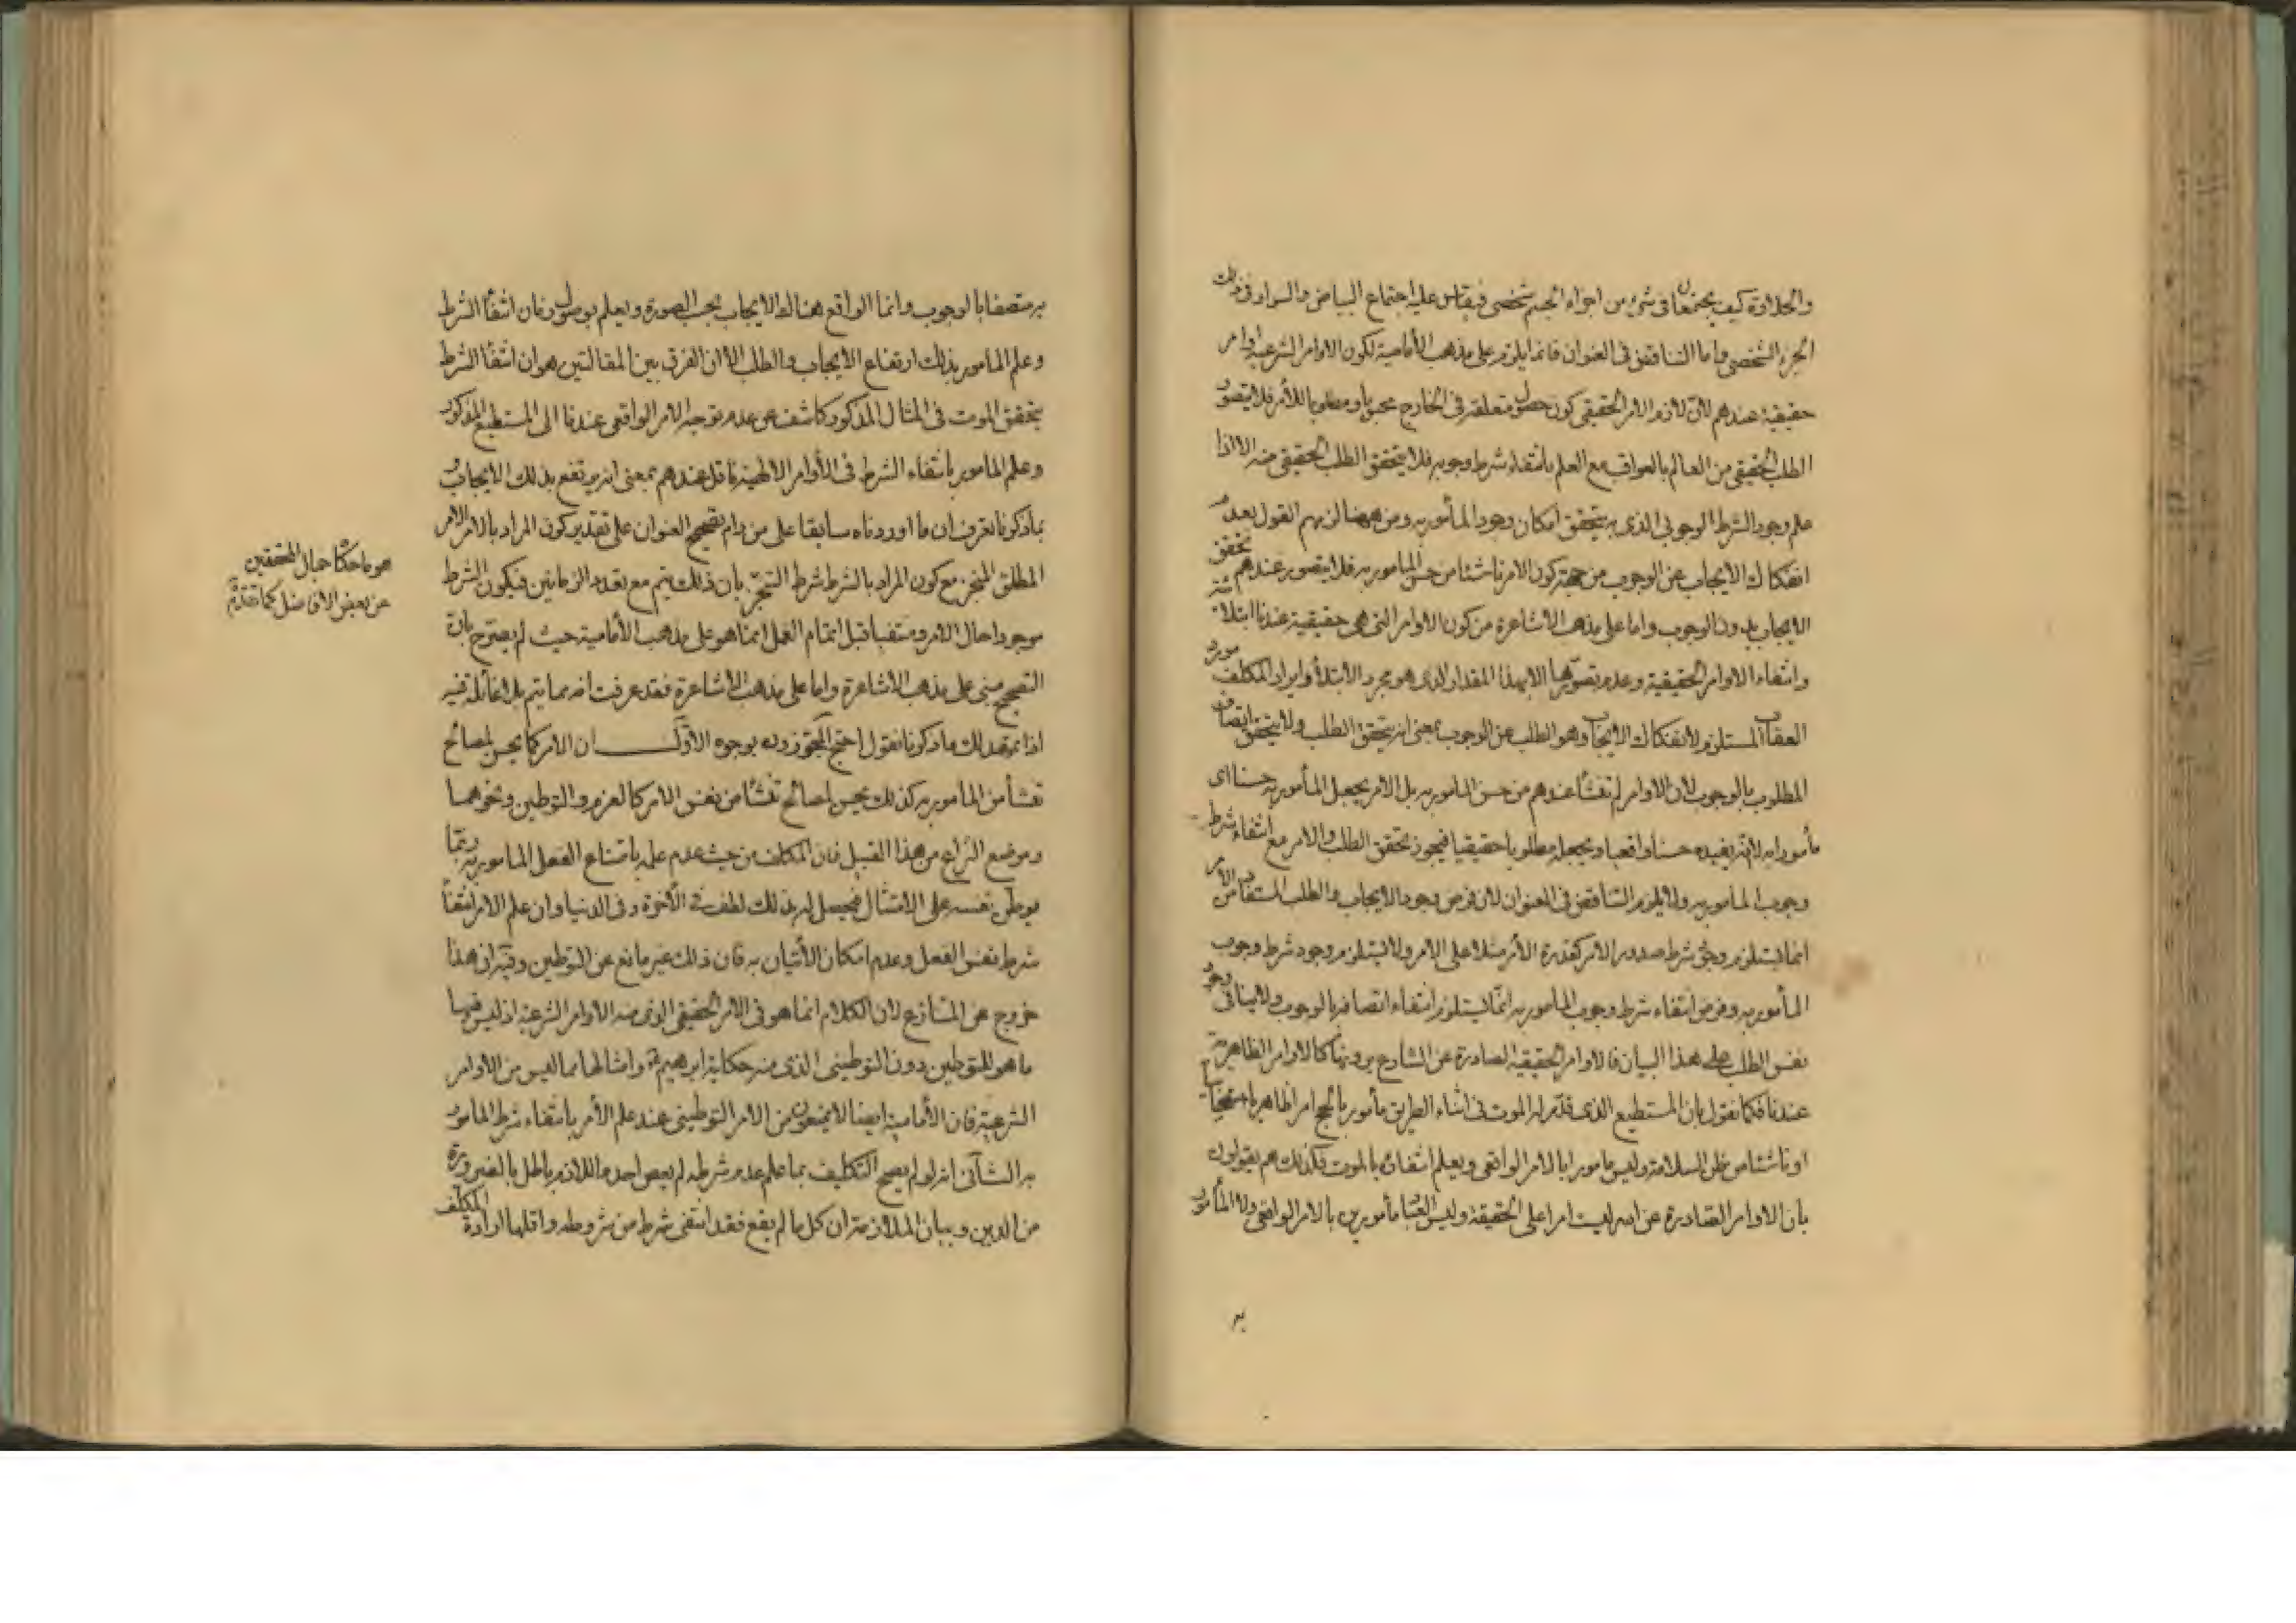 والحلاوة كيف يجتمعان في شئ من اجزاء الجسم شخصى فيقاس عليه اجتماع البياض والسواد في ذلك
الجزء الشخصى واما التناقض في العنوان فانما يلزم على مذهب الأمامية لكون الاوامر الشرعية اوامر
حقيقية عندهم لان لازم الامر الحقيقى كون حصول متعلقه في الخارج محبوبا ومطلوبا للآمر فلا يتصور
الطلب الحقيقى من العالم بالعواقب مع العلم بانتفاء شرط وجوبه فلا يتحقق الطلب الحقيقى منه الا اذا
علم وجود الشرط الوجوبى الذى به يتحقق امكان وجود المأمور به ومن ههنا لزمهم القول بعدم
انفكاك الايجاب عن الوجوب من جهة كون الامر ناشئا من حسن المأمور به فلا يتصور عندهم تحقق
الايجاب بدون الوجوب واما على مذهب الاشاعرة من كون الاوامر التى هى حقيقية عندنا ابتلائية
وانتفاء الاوامر الحقيقية وعدم تصورها الا بهذا المقدار الذى هو مجرد الابتلاء وايراد المكلف مورد
العقاب المستلزم لانفكاك الايجاب وهو الطلب عن الوجوب بمعنى انه يتحقق الطلب ولا يتحقق اتصاف
المطلوب بالوجوب لان الاوامر لم تنشأ عندهم من حسن المأمور به بل الامر يجعل المأمور به حسنا اى
مأمورا به لانه يفيده حسنا واقعيا ويجعله مطلوبا حقيقيا فيجوز تحقق الطلب والامر مع انتفاء شرط
وجوب المأمور به ولا يلزم التناقض في العنوان لان فرض وجود الايجاب والطلب المستفاد من الامر
انما يستلزم وجود شرط صدور الامر كقدرة الآمر مثلا على الامر ولا يستلزم وجود شرط وجوب
المأمور به وفرض انتفاء شرط وجوب المأمور به انما يستلزم انتفاء اتصافه بالوجوب ولا ينافى وجود
نفس الطلب على هذا البيان فالاوامر الحقيقية الصادرة عن الشارع يرونها كالاوامر الظاهرية
عندنا فكما نقول بان المستطيع الذى قدّر له الموت في اثناء الطريق مأمور بالحج امرا ظاهريا
او ناشئا من ظن السلامة وليس مامورا بالامر الواقعى ويعلم انتفائه بالموت فكذلك هم يقولون
بان الاوامر الصادرة عن الله ليست امرا على الحقيقة وليس العباد مأمورين بالامر الواقعى ولا المأمور
به
به متصفا بالوجوب وانما الواقع هنالك الايجاب بحسب الصورة ويعلم بوصول زمان انتفاء الشرط
وعلم المامور بذلك ارتفاع الايجاب والطلب الا ان الفرق بين المقالتين هو ان انتفاء الشرط
بتحقق الموت في المثال المذكور كاشف عن عدم توجه الامر الواقعى عندنا الى المستطيع المذكور
وعلم المامور بانتفاء الشرط في الأوامر الالهية ناقل عندهم بمعنى انه يرتفع بذلك الايجاب و
بما ذكرنا تعرف ان ما اوردناه سابقا على من رام تصحيح العنوان على تقدير كون المراد بالامر الامر
المطلق المنجز مع كون المراد بالشرط شرط التنجّز بان ذلك يتم مع تعدد الزمانين فيكون الشرط
موجودا حال الامر ومنتفيا قبل اتمام الفعل انما هو على مذهب الأمامية حيث لم يصرّح بان
التصحيح مبنى على مذهب الاشاعرة واما على مذهب الاشاعرة فقد عرفت انه مما يتم بلا غائلة فيه
اذا تمهد لك ما ذكرنا فنقول احتج المجوّزون بوجوه الاوّل ان الامر كما يحسن لمصالح
تنشأ من المأمور به كذلك يحسن لمصالح تنشأ من نفس الامر كالعزم والتوطين ونحوهما
وموضع النزاع من هذا القبيل فان المكلف من حيث عدم علمه بامتناع الفعل المامور به ربّما
يوطن نفسه على الامتثال فيحصل له بذلك لطف في الأخرة وفى الدنيا وان علم الامر انتفاء
شرط نفس الفعل وعدم امكان الأتيان به فان ذلك غير مانع عن التوطين وفيه ان هذا
خروج عن المتنازع لان الكلام انما هو في الامر الحقيقى الذى منه الاوامر الشرعية اذ ليس فيها
ما هو للتوطين دون التوطينى الذى منه حكاية ابرهيم ع وامثالها مما ليس من الاوامر
الشرعية فان الأمامية ايضا لا يمنعون من الامر التوطينى عند علم الأمر بانتفاء شرط المامور
به الثانى انه لو لم يصح التكليف بما علم عدم شرطه لم يعص احد واللازم باطل بالضرورة
من الدين وبيان الملازمة ان كل ما لم يقع فقد انتفى شرط من شروطه واقلها ارادة المكلف
هو ما حكاه جمال المحققين
عن بعض الافاضل كما تقدم